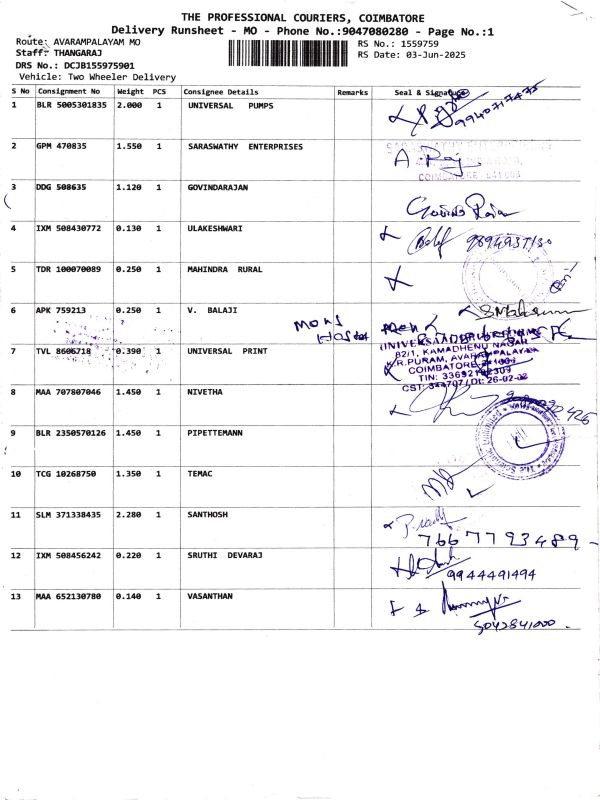 THE PROFESSIONAL COURIERS, COIMBATORE
Delivery Runsheet - MO - Phone No.:9047080280 - Page No.:1
Route: AVARAMPALAYAM MO
RS No.: 1559759
Staff: THANGARAJ
RS Date: 03-Jun-2025
DRS No.: DCJB155975901
Vehicle: Two Wheeler Delivery
S No Consignment No Weight PCS Consignee Details Remarks Seal & Signature
1 BLR 5005301835 2.000 1 UNIVERSAL PUMPS
2 GPM 470835 1.550 1 SARASWATHY ENTERPRISES
3 DDG 508635 1.120 1 GOVINDARAJAN
4 IXM 508430772 0.130 1 ULAKESHWARI
5 TDR 100070089 0.250 1 MAHINDRA RURAL
6 APK 759213 0.250 1 V. BALAJI
7 TVL 8606718 0.390 1 UNIVERSAL PRINT
82/1, KAMADHENU NAGAR
K.R.PURAM, AVARAMPALAYAM
COIMBATORE
8 MAA 707807046 1.450 1 NIVETHA
9 BLR 2350570126 1.450 1 PIPETTEMANN
10 TCG 10268750 1.350 1 TEMAC
11 SLM 371338435 2.280 1 SANTHOSH
7667793489
12 IXM 508456242 0.220 1 SRUTHI DEVARAJ
9944491494
13 MAA 652130780 0.140 1 VASANTHAN